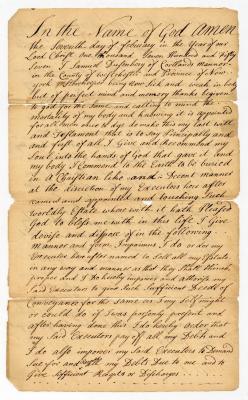 In the Name of God Amen
the Seventh day of February in the Year of our
Lord Christ One thousand Seven Hundred and Fifty
Seven I Samuel Dusenbery of Cortlandt mannor
in the County of Westchester and Province of New
york being very Sick and weak in body
but of perfect mind and memory thanks be given
to god for the same and calling to mind the
mortality of my body and knowing it is appointed
for all men once to dye do make this my last will
and Testament that is to Say Principally and
and first of all I Give and Recommend my
Soul into the hands of God that gave it and
my body I Commend to the Earth to be buried
in a Christian like and Decent manner
at the discretion of my Executors here after
named and appointed and touching Such
worldly Estate where with it hath Pleased
God to bless me with in this life I Give
devise and dispose of in the following
manner and form. Imprimus I do order my
Executors hereafter named to Sell all my Estate
in any way and manner as that they Shall think
Proper and I do hereby impower and authorise my
Said Executors to give Such Sufficient Deeds of
Conveyance for the Same as I my Self might
or could do if I was personly present and
after having done this I do hereby order that
my Said Executors pay off all my Debts and
I do also impower my Said Executors to Demand
Sue for and all my Debts Due to me and to
Give Sufficient Receipts or Discharges